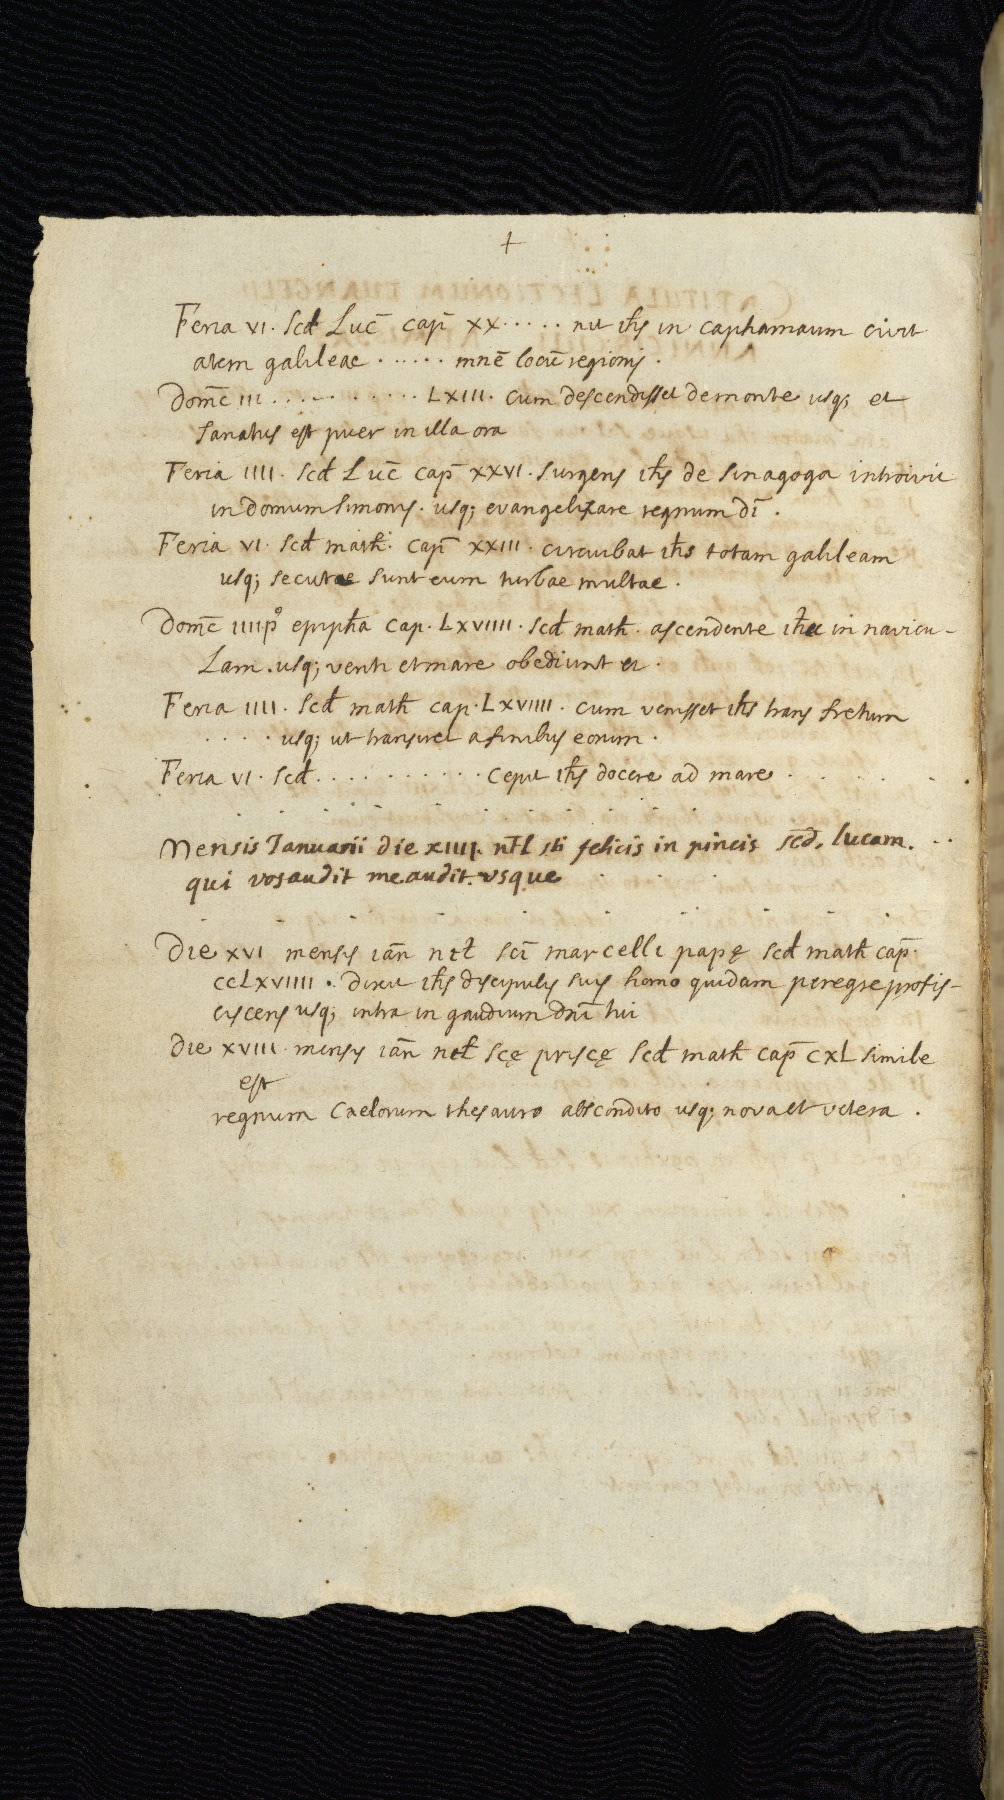 +
Feria VI. Scđ Luc̄ cap̄ XX ..... nit ih̄s in capharnaum civit
atem galileae ...... mnē locū regionis.
Dom̄c III ........... LXIII. cum descendisset de monte usq; et
sanatus est puer in illa ora
Feria IIII. Scđ Luc̄ cap̄ XXVI. surgens ih̄s de sinagoga introivit
in domum simonis. usq; evangelizare regnum dī.
Feria VI. Scđ math̄. cap̄ XXIII. circuibat ih̄s totam galileam
usq; secutae sunt eum turbae multae.
Dom̄c IIII p̊ epiph̄a cap. LXVIIII. scđ math̄. ascendente ih̄u in navicu-
Lam. usq; venti et mare obediunt ei.
Feria IIII. Scđ math̄ cap. LXVIIII. cum venisset ih̄s trans fretum
.... usq; ut transiret a finibus eorum.
Feria VI. scđ .......... cepit ih̄s docere ad mare ......
Mensis Januarii die XIIII. nt̄l sti felicis in pincis scd̄. lucam. ..
qui vos audit me audit. usque
Die XVI mensis ian̄ nt̄l scī marcelli papę scđ math̄ cap̄.
ccLXVIIII. dixit ih̄s discipulis suis homo quidam peregre profis-
ciscens usq; intra in gaudium dnī tui
Die XVIII mensis ian̄ nt̄l scę priscę scđ math̄ cap̄ CXL simile
est
regnum caelorum thesauro abscondito usq; nova et vetera.